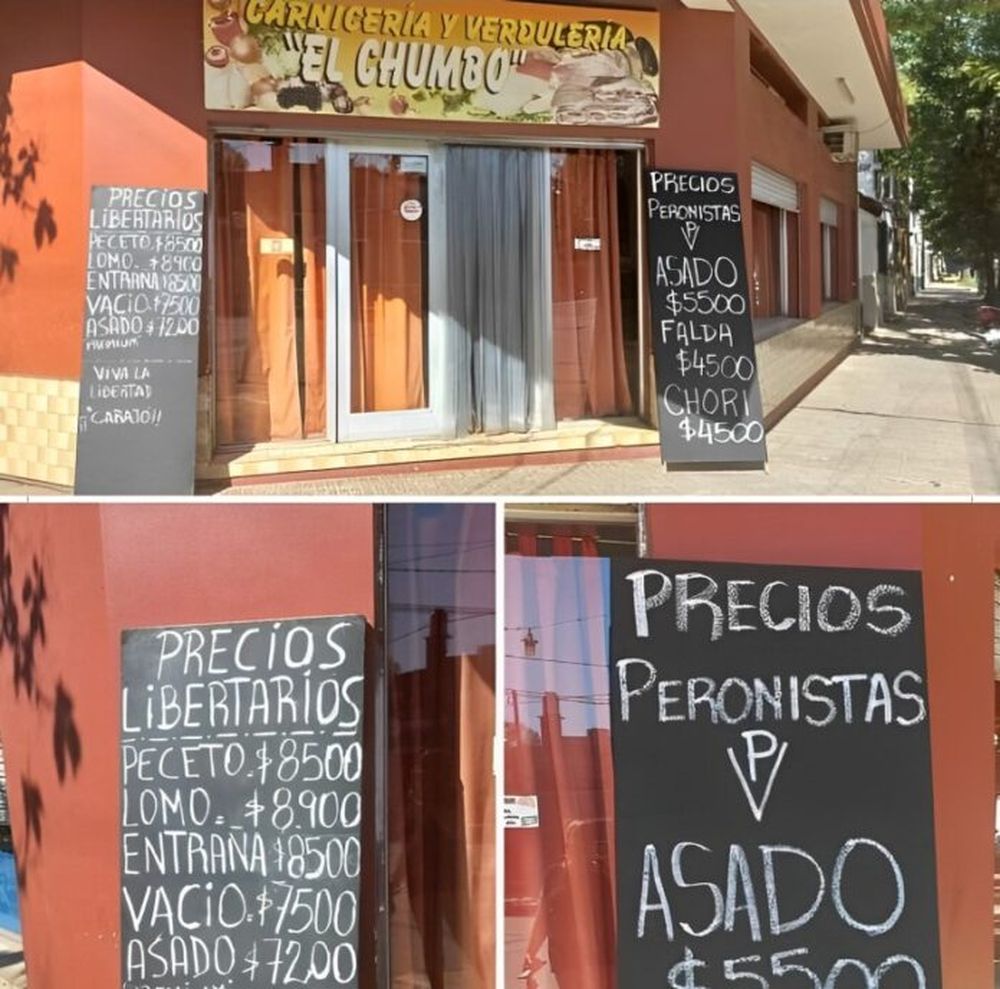 CARNICERÍA Y VERDULERÍA
"EL CHUMBO"
PRECIOS
LIBERTARIOS
PECETO. $8500
LOMO.- $8900
ENTRAÑA $8500
VACIO.$7500
ASADO $72.00
PREMIUM
VIVA LA
LIBERTAD
¡CARAJO!!
PRECIOS
PERONISTAS
P
V
ASADO
$5500
FALDA
$4500
CHORI
$4500
PRECIOS
LIBERTARIOS
PECETO.-$8500
LOMO.-_$8.900
ENTRAÑA $8500
VACIO.-$7500
ASADO $72.00
PRECIOS
PERONISTAS
P
V
ASADO
$5500